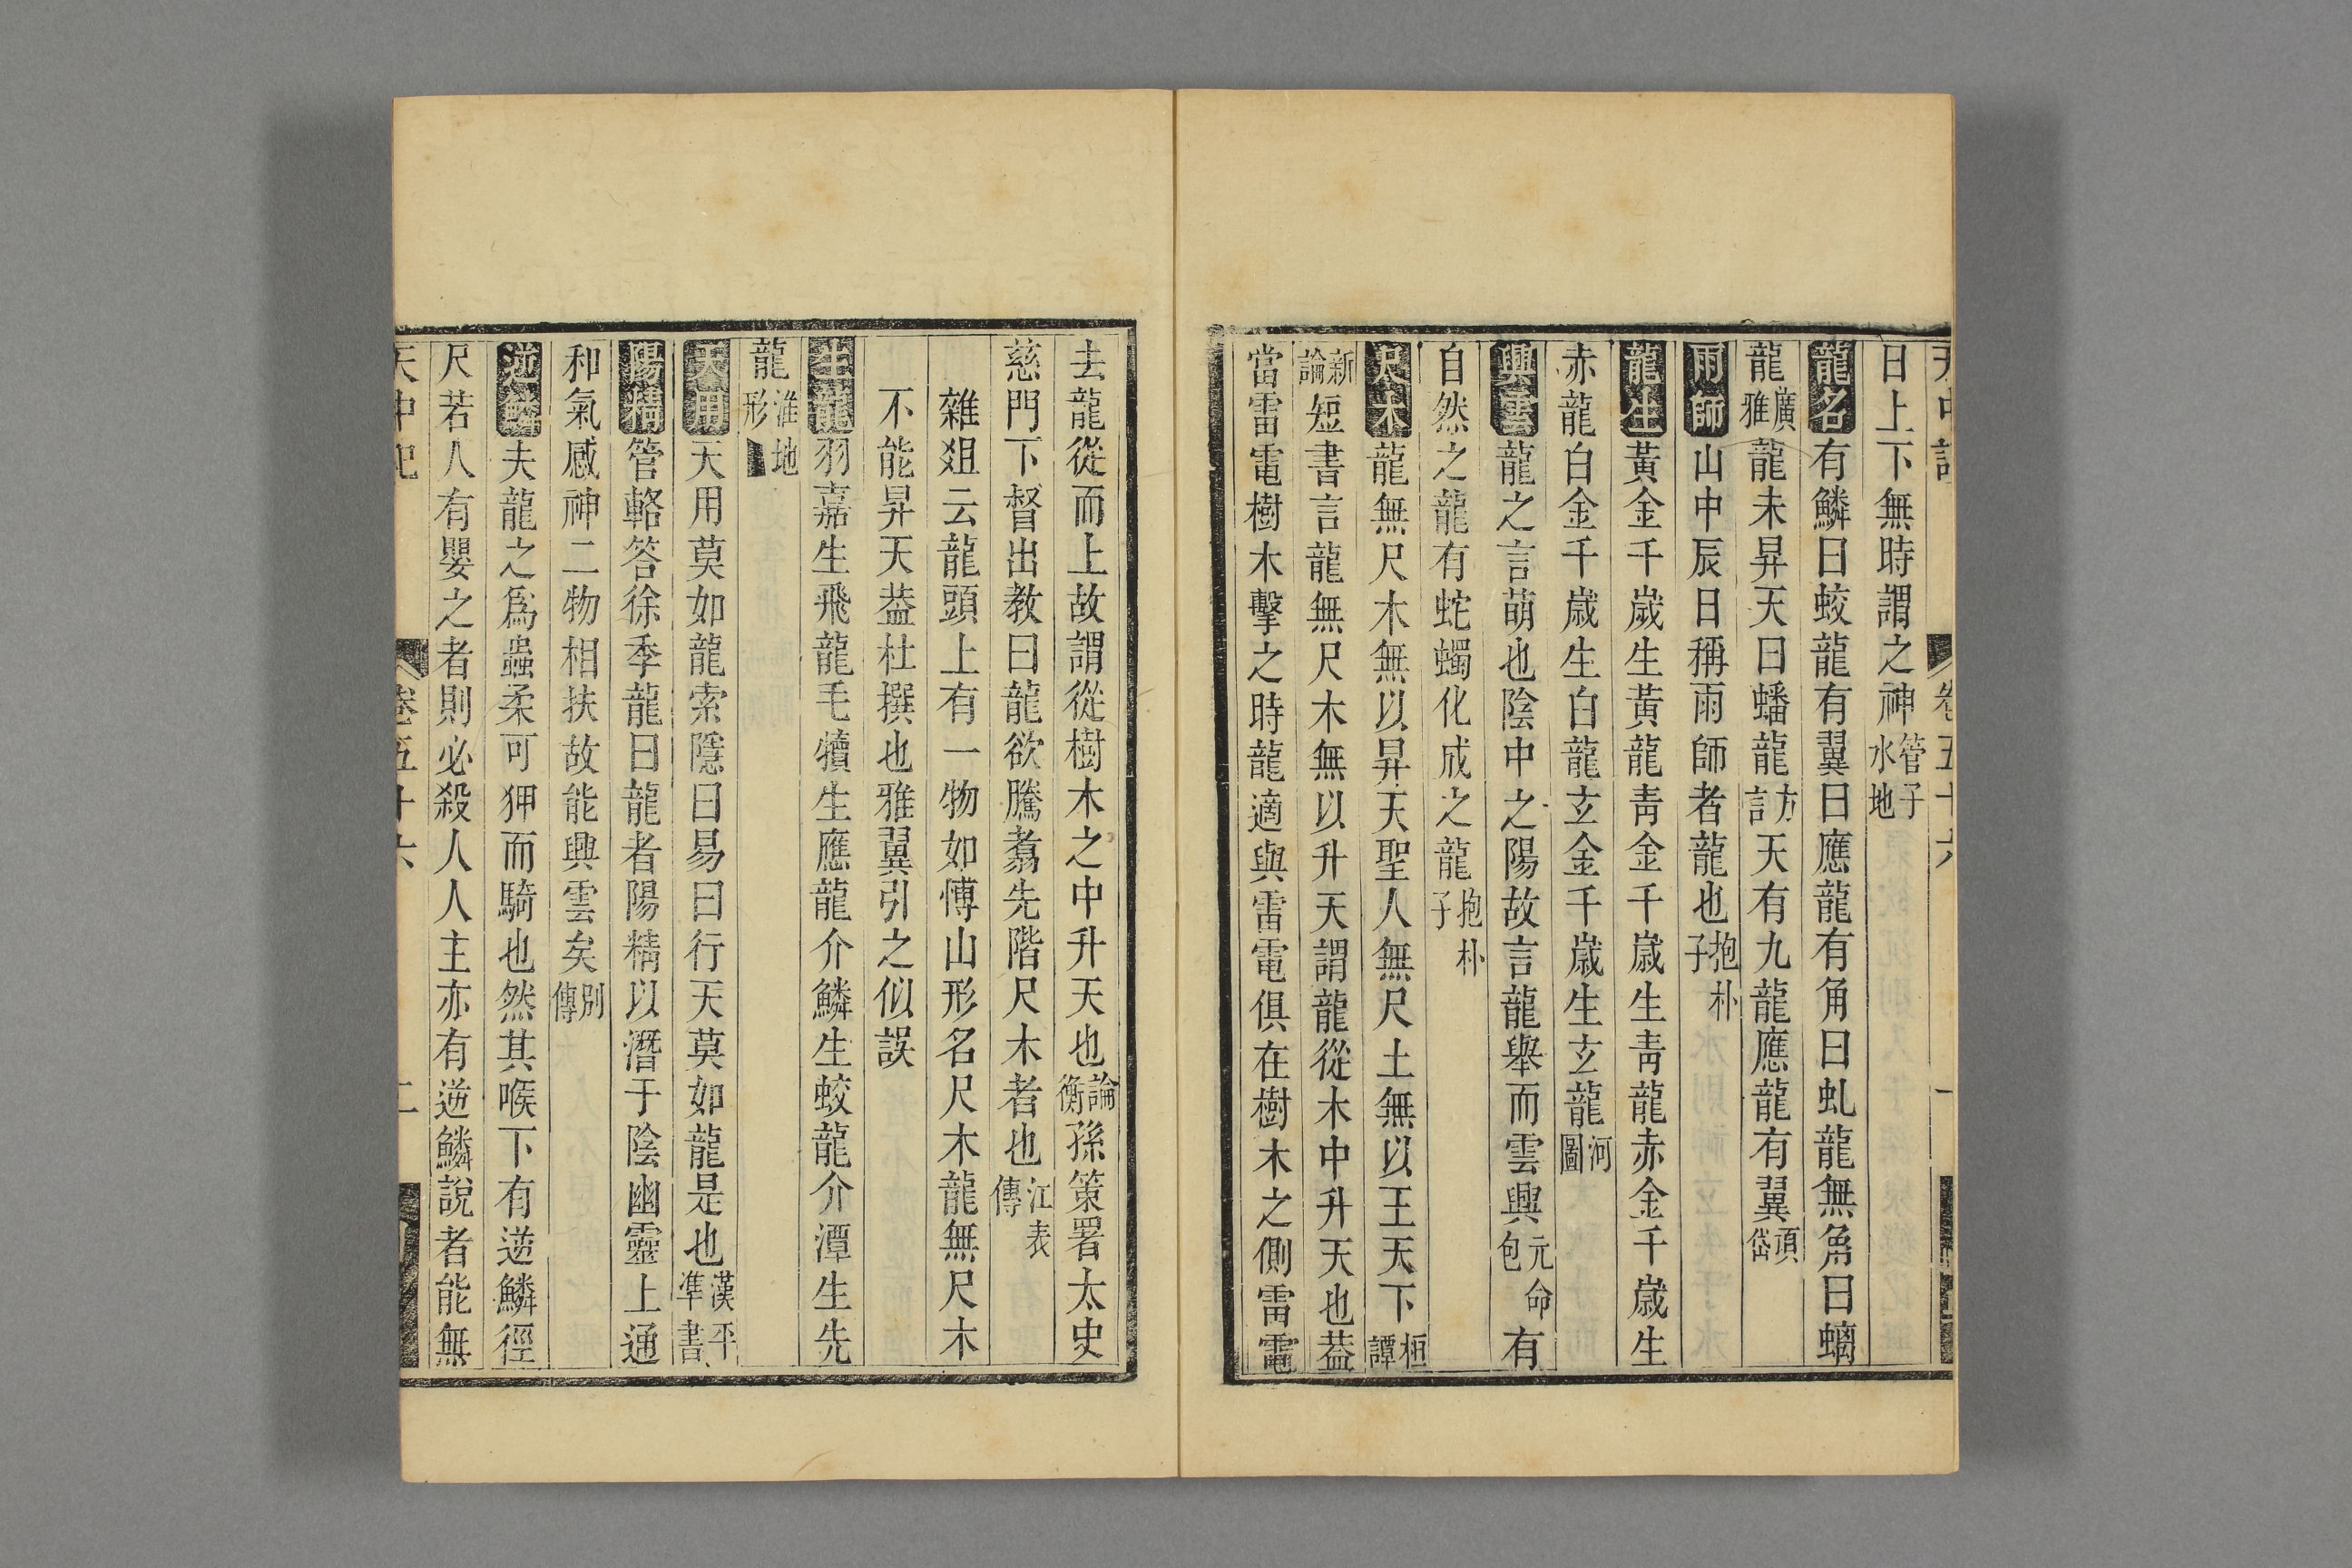 天中記 卷五十六 一
日上下無時謂之神管子水地
龍名有鱗曰蛟龍有翼曰應龍有角曰虬龍無角曰螭
龍廣雅龍未昇天曰蟠龍方言天有九龍應龍有翼項岱
雨師山中辰日稱雨師者龍也抱朴子
龍生黃金千歲生黃龍青金千歲生青龍赤金千歲生
赤龍白金千歲生白龍玄金千歲生玄龍河圖
興雲龍之言萌也陰中之陽故言龍舉而雲興元命包有
自然之龍有蛇蠋化成之龍抱朴子
尺木龍無尺木無以昇天聖人無尺土無以王天下桓譚
新論短書言龍無尺木無以升天謂龍從木中升天也葢
當雷電樹木擊之時龍適與雷電俱在樹木之側雷電
去龍從而上故謂從樹木之中升天也論衡孫策署太史
慈門下督出教曰龍欲騰翥先階尺木者也江表傳
雜俎云龍頭上有一物如博山形名尺木龍無尺木
不能昇天葢杜撰也雅翼引之似誤
生龍羽嘉生飛龍毛犢生應龍介鱗生蛟龍介潭生先
龍淮地形
天用天用莫如龍索隱曰易曰行天莫如龍是也漢平準書
陽精管輅答徐季龍曰龍者陽精以潛于陰幽靈上通
和氣感神二物相扶故能興雲矣別傳
逆鱗夫龍之爲蟲柔可狎而騎也然其喉下有逆鱗徑
尺若人有嬰之者則必殺人人主亦有逆鱗說者能無
天中記 卷五十六 二